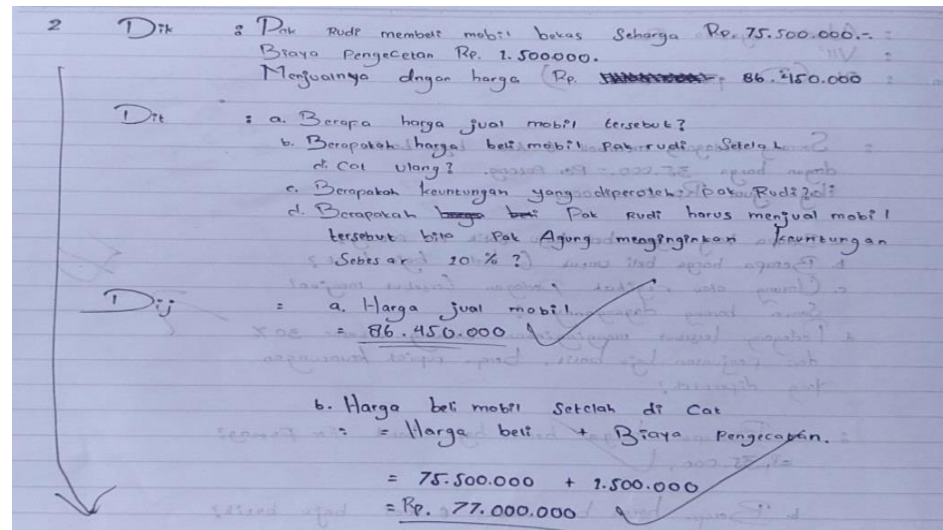 2 Dik : Pak Rudi membeli mobil bekas Seharga Rp. 75.500.000.-
Biaya Pengecetan Rp. 1.500.000.
Menjualnya dngan harga (Rp. 86.450.000
Dit : a. Berapa harga jual mobil tersebut?
b. Berapakah harga beli mobil Pak rudi Setelah
di Cat ulang?
c. Berapakah keuntungan yang diperoleh Pak Rudi?
d. Berapakah Pak Rudi harus menjual mobil
tersebut bila Pak Agung menginginkan keuntungan
Sebesar 20 % ?
Dij = a. Harga jual mobil
= 86.450.000
b. Harga beli mobil Setelah di Cat
= Harga beli + Biaya Pengecatan.
= 75.500.000 + 1.500.000
= Rp. 77.000.000